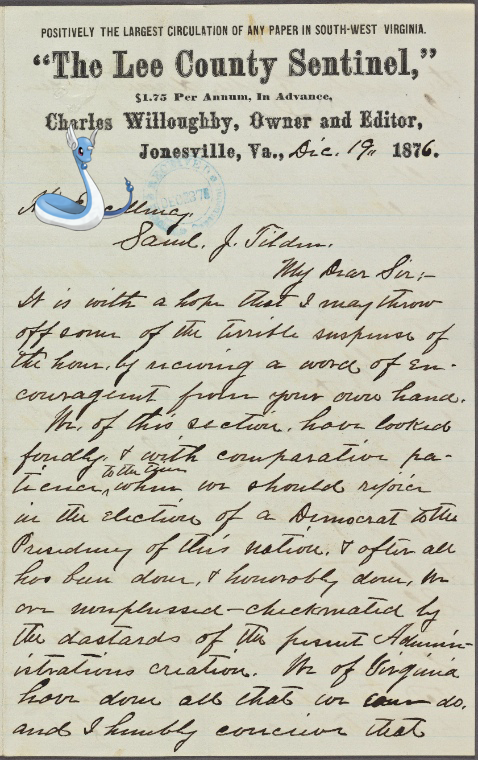 POSITIVELY THE LARGEST CIRCULATION OF ANY PAPER IN SOUTH-WEST VIRGINIA.
“The Lee County Sentinel,”
$1.75 Per Annum, In Advance,
Charles Willoughby, Owner and Editor,
Jonesville, Va., Dec. 19" 1876.
Saml. J. Tilden.
My Dear Sir;-
It is with a hope that I may throw
off some of the terrible suspense of
the hour, by recieving a word of en-
couragement from your own hand.
We, of this section, have looked
fondly, & with comparative pa-
tience, to the time
when we should rejoice
in the Election of a Democrat to the
Presidency of this nation, & after all
has been done, & honorably done, we
are nonplussed-checkmated by
the dastards of the present Admin-
istrations creation. We of Virginia
have done all that we can do,
and I humbly conceive that